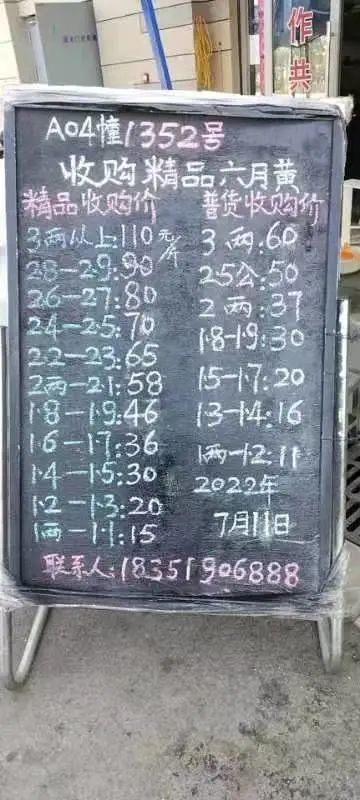 作共
A04幢1352号
收购精品六月黄
精品收购价
3两以上:110元/斤
28-29:90
26-27:80
24-25:70
22-23:65
2两-21:58
1·8-1·9:46
1·6-1·7:36
1·4-1·5:30
1·2-1·3:20
1两-1·1:15
普货收购价
3两:60
25公:50
2两:37
1·8-1·9:30
1·5-1·7:20
1·3-1·4:16
1两-1·2:11
2022年
7月11日
联系人:18351906888